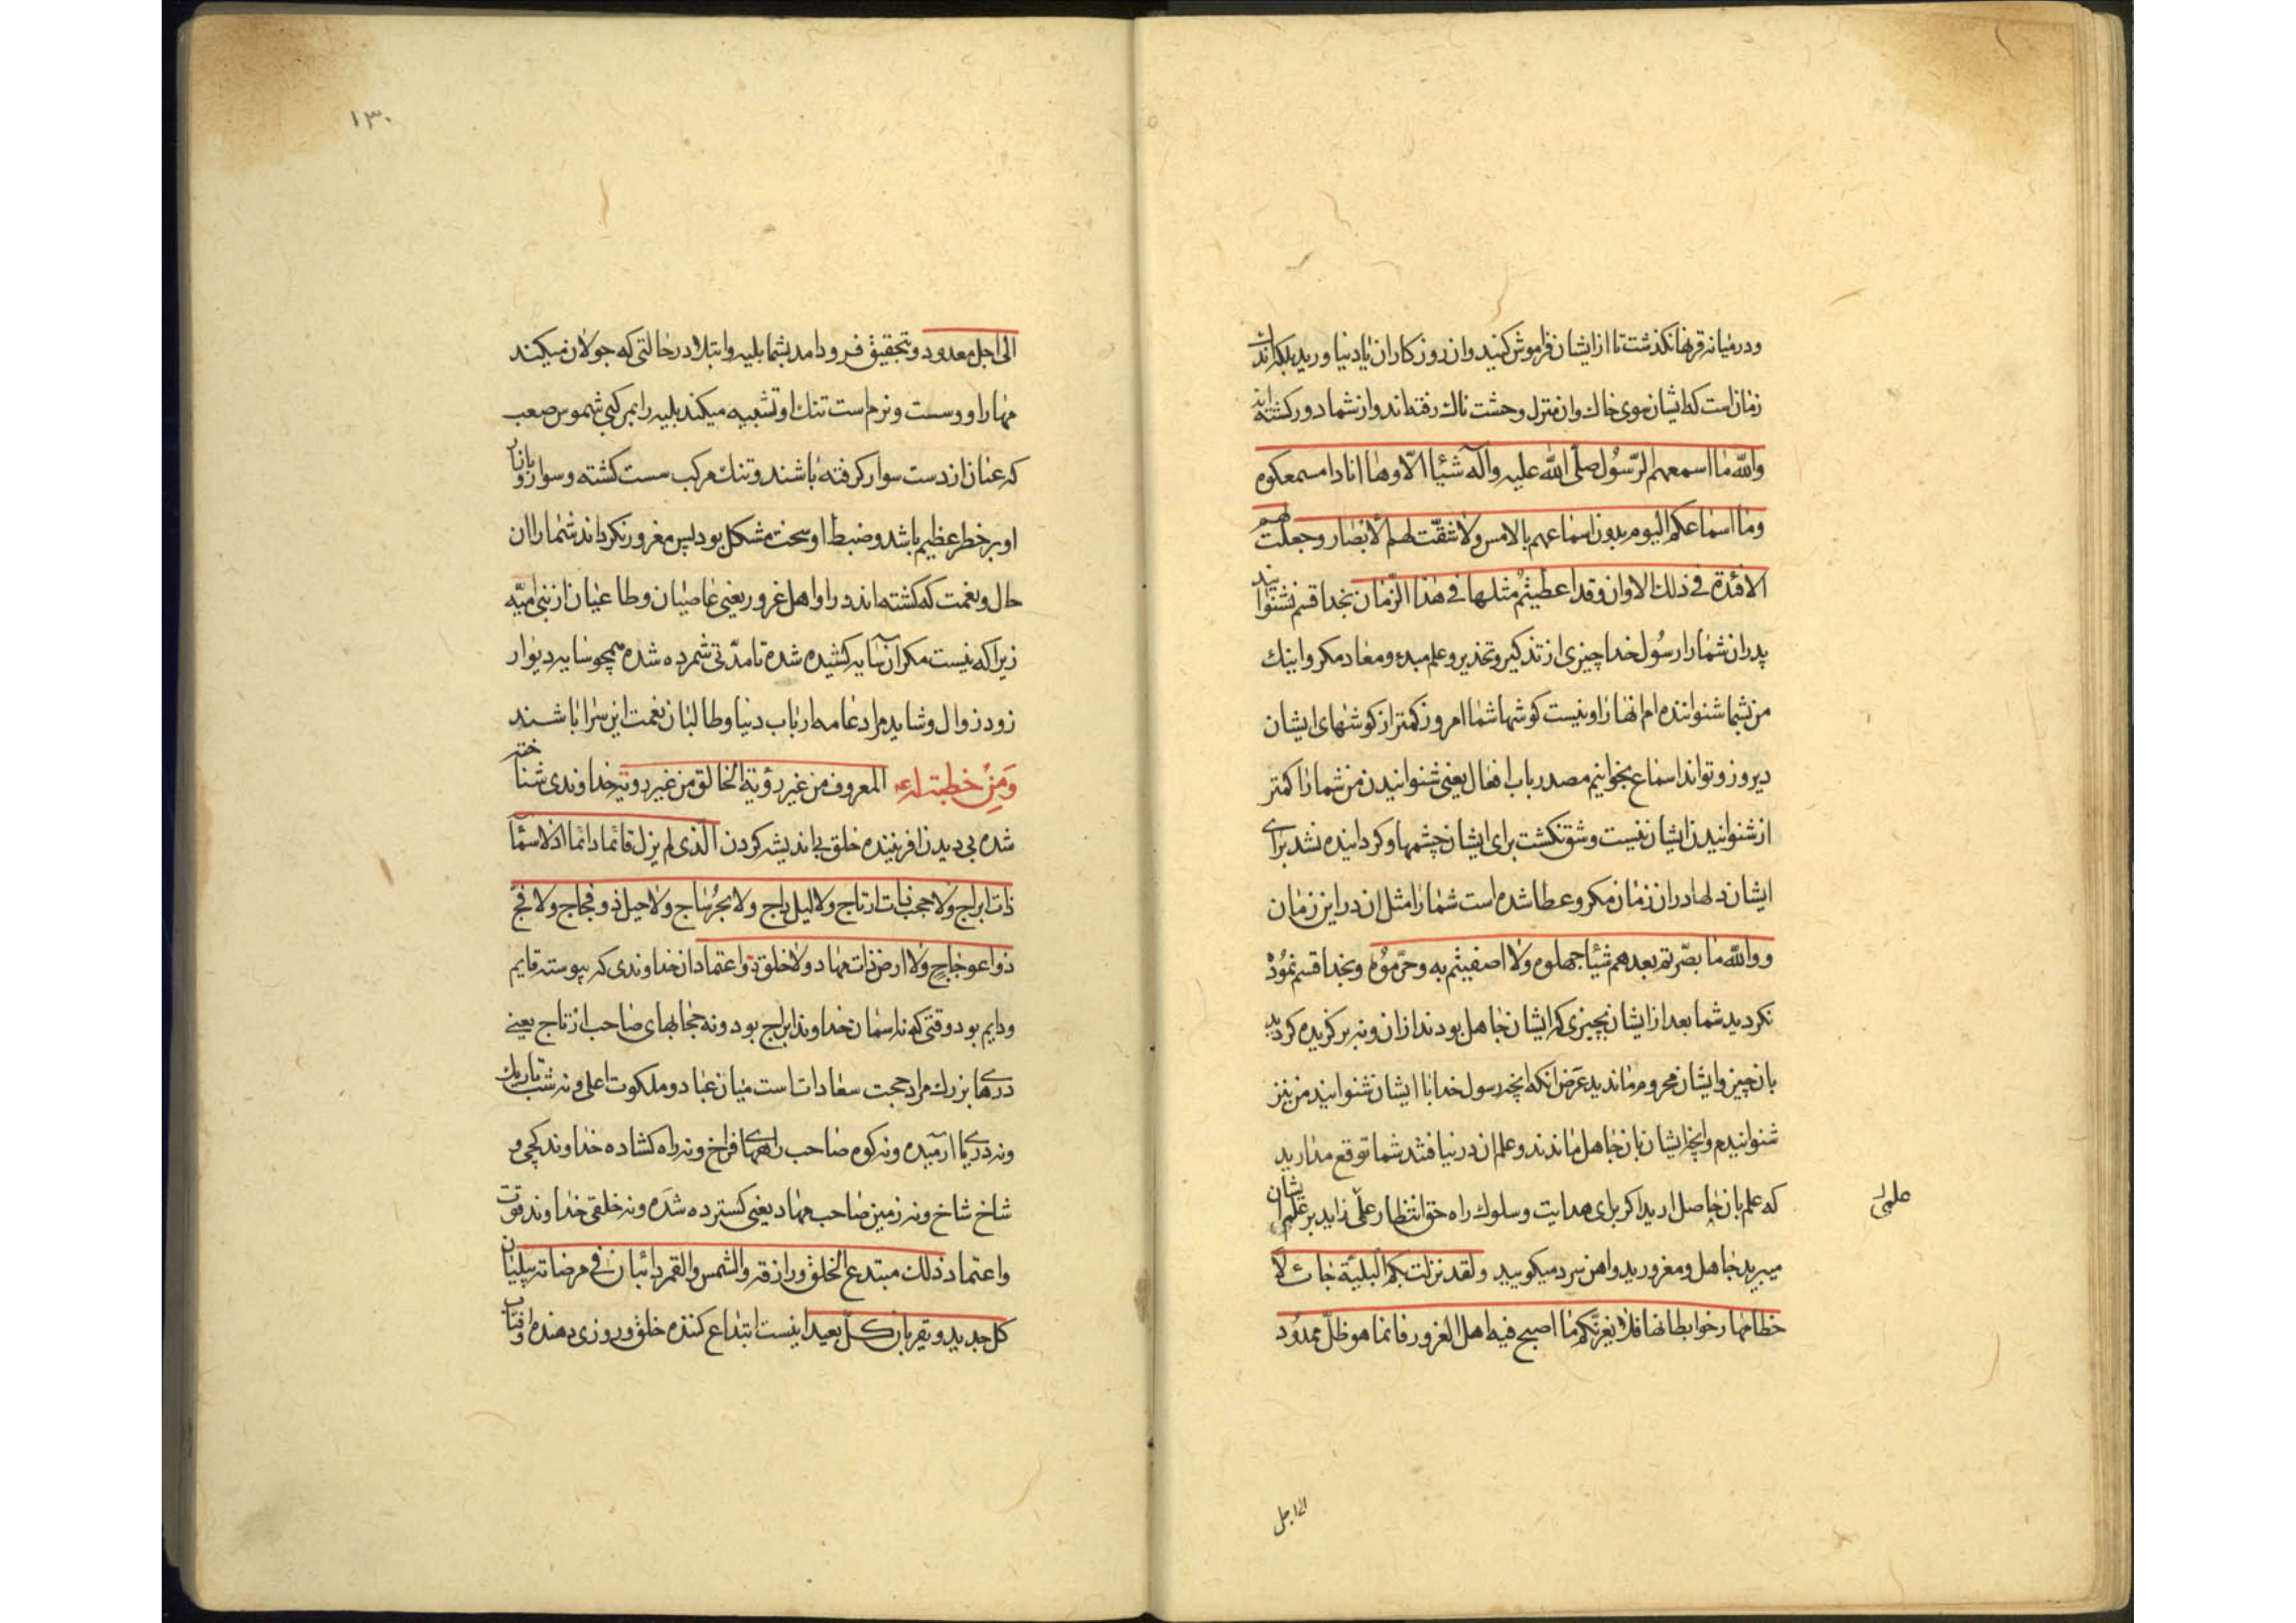 ودر میانه قرنها نکذشت تا از ایشان فراموش کنید وان روزکاران نا یاد نیاورید بلکه اندك
زمان است که ایشان سوی خاك وان منزل وحشت ناك رفته اند واز شما دور کشته اند
والله ما اسمعهم الرّسُول صلّی الله علیه وآله شیئا الّا وها انا ذا مسمعکوه
وما اسماعکم الیوم بدون اسماعهم بالامس ولا شقّت لهم الابصار وجعلت لهم
الافئدة فی ذلك الاوان وقد اعطیتُم مثلها فی هذا الزّمان بخدا قسم نشنوانید
پدران شما را رسُول خدا چیزی از تذکیر وتحذیر وعلم مبدء ومعاد مکر واینك
من بشما شنواننده ام انها را ونیست کوشها شما امروز کمتر از کوشهای ایشان
دیروز وتواند اسماع بخوانیم مصدر باب افعال یعنی شنوانیدن من شما را کمتر
از شنوانیدن ایشان نیست وشق نکشت برای ایشان چشمها وکردانیده نشد برای
ایشان دلها در ان زمان مکر وعطا شده است شما را مثل ان در این زمان
ووالله ما بصّرتم بعدهم شیئا جهلوه ولا اصفیتم به وحرّموُه وبخدا قسم نموُده
نکردید شما بعد از ایشان بچیزی که ایشان جاهل بودند از ان ونه برکزیده کردید
بان چیز وایشان محروم ماندید غرض انکه انچه رسول خدا با ایشان شنوانید من نیز
شنوانیدم وانچه ایشان بان جاهل ماندند وعلم ان در نیافتند شما توقع مدارید
که علم بان حاصل ارید اکر برای هدایت وسلوك راه حق انتظار علمی زاید بر علم ایشان
علمی
میبرید جاهل ومغرورید واهن سرد میکوبید ولقد نزلت بکم البلیّة جائلا
خطامها رخوا بطانها فلا یغرّنکم ما اصبح فیه اهل الغرور فانما هو ظلّ ممدُود
الی اجل
۱۳۰
الی اجل معدود وبتحقیق فرود امد بشما بلیه وابتلا در حالتی که جولان میکند
مهار او وسست ونرم است تنك او تشبیه میکند بلیه را بمرکبی شموس صعب
که عنان از دست سوار کرفته باشند وتنك مرکب سست کشته وسوار وبا ان
او بر خطر عظیم باشد وضبط او سخت مشکل بود پس مغرور نکرداند شما را ان
حال ونعمت که کشته اند در او اهل غرور یعنی عاصیان وطاغیان از بنی امیّه
زیرا که نیست مکر ان سایه کشیده شده تا مدّتی شمرده شده همچو سایه دیوار
زود زوال وشاید مراد عامه ارباب دنیا وطالبان نعمت این سرا باشند
وَمِنْ خطبته له ع المعروف من غیر رؤیة الخالق من غیر رویّة خداوندی شناخته
شده بی دیدن افریننده خلق بی اندیشه کردن الّذی لم یزل قائما دائما اذ لا سمآء
ذات ابراج ولا حجب ذات ارتاج ولا لیل داج ولا بحرُ ساج ولا جبل ذو فجاج ولا فجّ
ذو اعوجاج ولا ارض ذات مهاد ولا خلق ذو اعتماد ان خداوندی که پیوسته قایم
ودایم بود وقتی که نه اسمان خداوند ابراج بود ونه حجابهای صاحب ارتاج یعنی
درهای بزرك مراد حجت سعادات است میان عباد وملکوت اعلی ونه شب تاریك
ونه دریای آرمیده ونه کوه صاحب راههای فراخ ونه راه کشاده خداوند کجی و
شاخ شاخ ونه زمین صاحب مهاد یعنی کسترده شده ونه خلقی خداوند قوّت
واعتماد ذلك مبتدع الخلق ورازقه والشمس والقمر دائبان فی مرضاته یبلیان
کل جدید ویقربان کلّ بعید اینست ابتداع کننده خلق وروزی دهنده او وافتاب